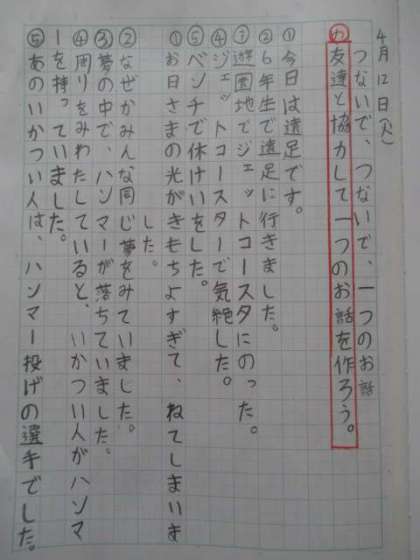 4月12日(火)
つないで、つないで、一つのお話
㋱友達と協力して一つのお話を作ろう。
①今日は遠足です。
②6年生で遠足に行きました。
③遊園地でジェットコースタにのった。
④ジェットコースターで気絶した。
⑤ベンチで休けいをした。
①お日さまの光がきもちよすぎて、ねてしまいま
した。
②なぜかみんな同じ夢をみていました。
③夢の中で、ハンマーが落ちていました。
④周りをみわたしていると、いかつい人がハンマ
ーを持っていました。
⑤あのいかつい人は、ハンマー投げの選手でした。